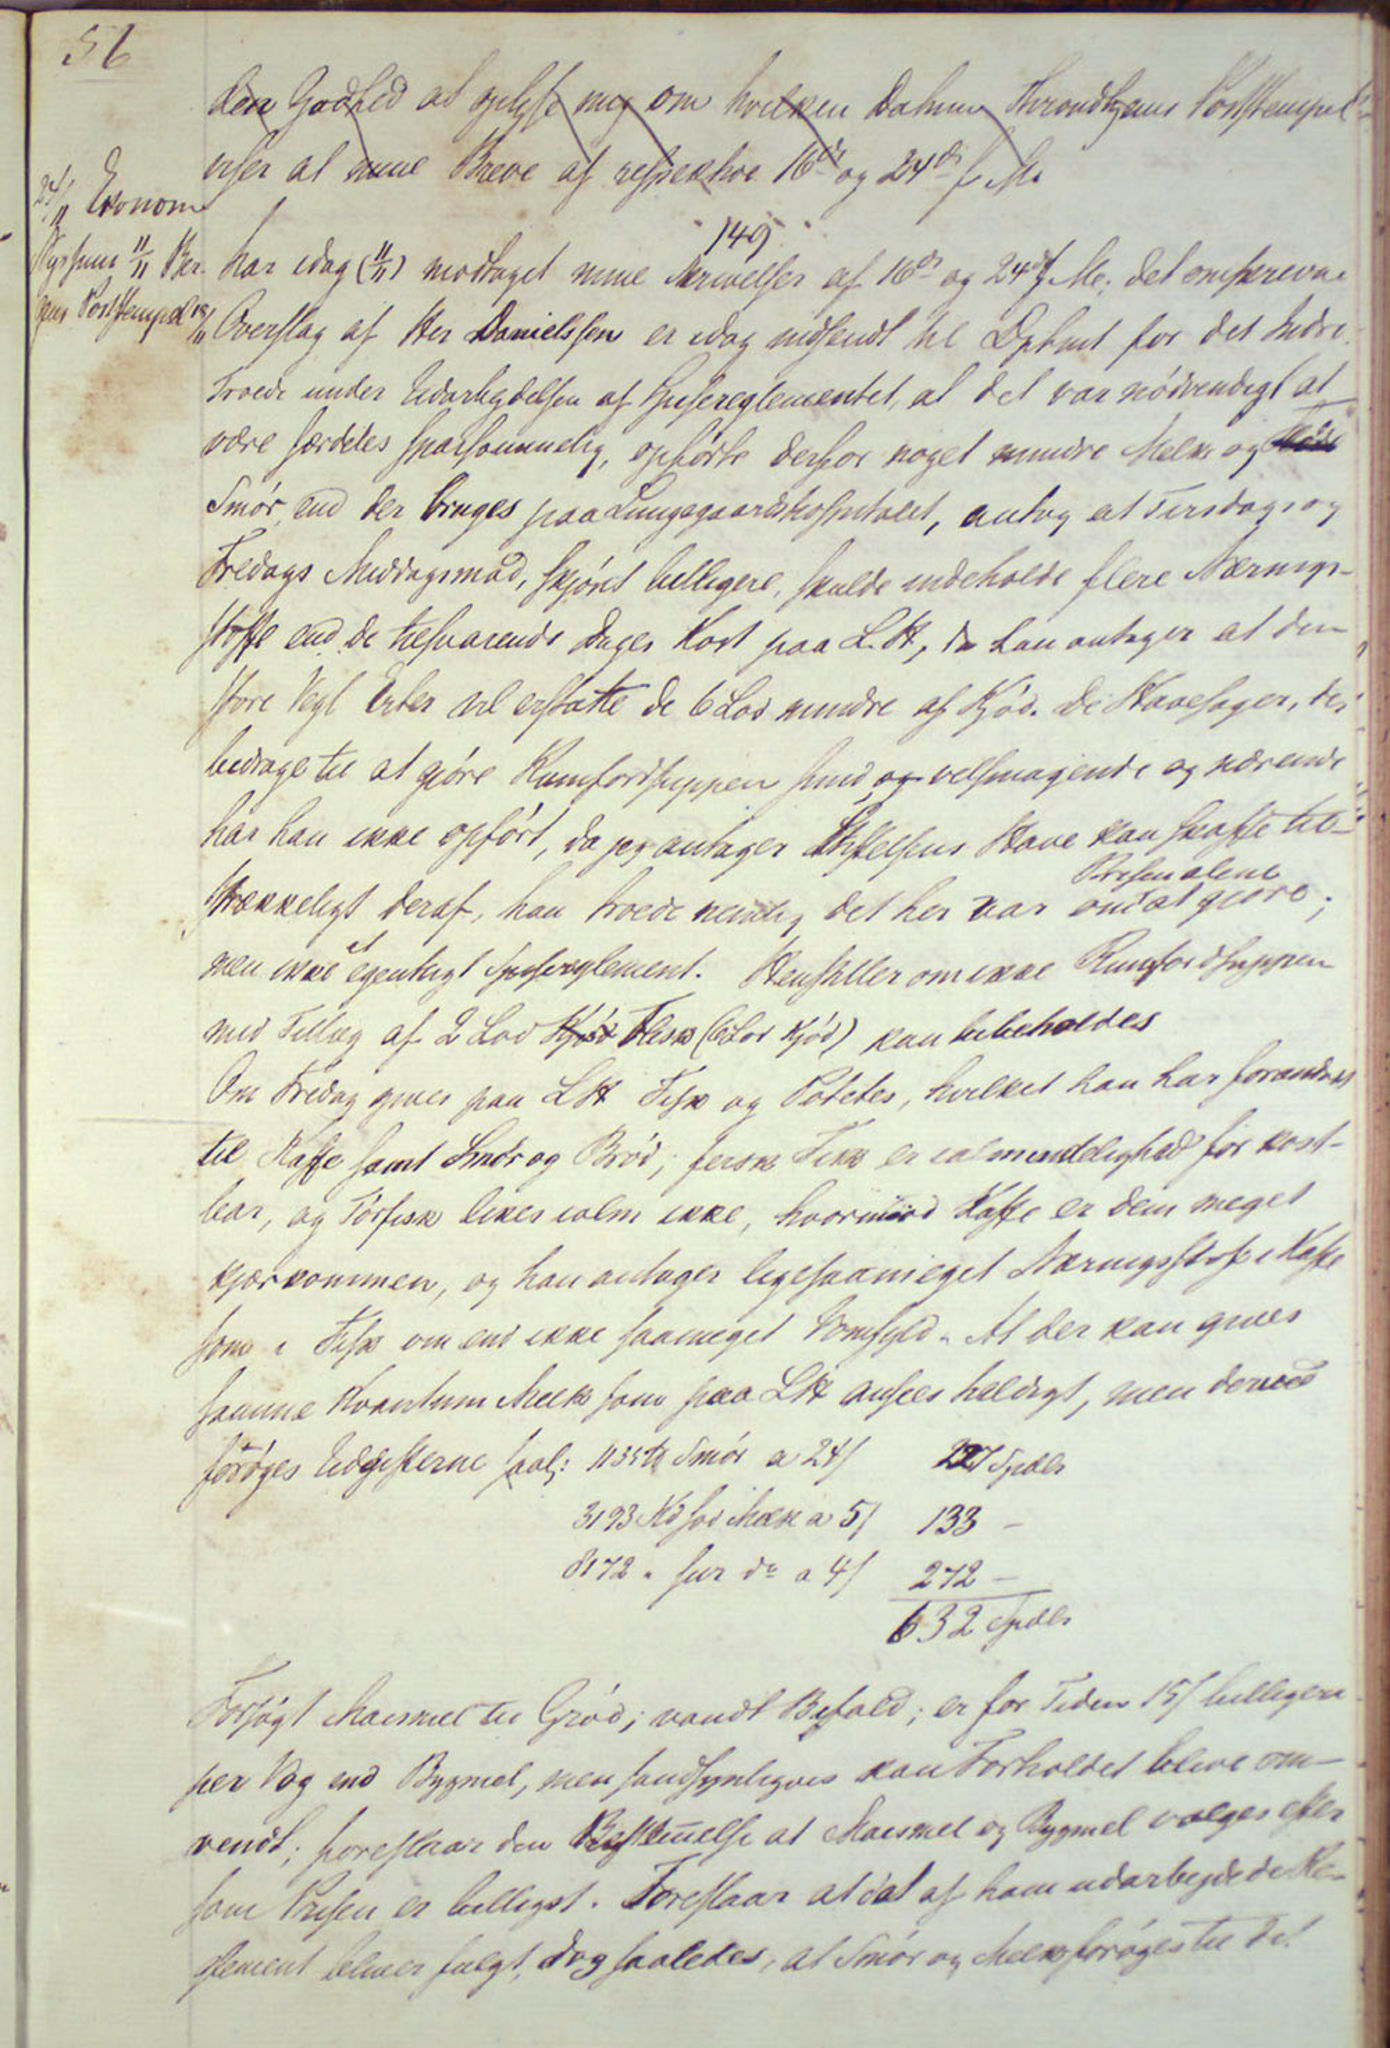 56
den Godhed at oplyse mig om hvilken Datum Throndhjems Poststempel
viser at mine Breve af respektive 16de og 24de f. M.
149.
24/11 Econom
Nyssum 11/11 Ber-
gens Poststempel 18/11
har idag (11/11) modtaget mine Skrivelser af 16de og 24de f. M.; det omskrevne
Overslag af Hr Danielssen er idag indsendt til Dptmt for det Indre.
Troede under Udarbejdelsen af Spisereglementet, at det var nödvendigt at
være særdeles sparsommelig, opförte derfor noget mindre Melk og
Smör, end der bruges paa Lungegaardshospitalet, antog at Tirsdags og
Fredags Middagsmad, skjönt billigere, skulde indeholde flere Nærings-
stoffe end de tilsvarende Dages Kost paa L.H, da han antager at den
store Vegt Erter vil erstatte de 6 Lod mindre af Kjöd. De Havesager, der
bidrage til at gjöre Rumfordsuppen sund og velsmagende og nærende
har han ikke opfört, da jeg antager Stiftelsens Have kan skaffe til-
strækkeligt deraf, han troede nemlig det her var Prisen alene om at gjöre;
men ikke et egentligt Spisereglement. Henstiller om ikke Rumfordsuppen
med Tillæg af 2 Lod Kjöd Flesk (6 Lod Kjöd) kan bibeholdes
Om Fredag gives paa LH Fisk og Potetes, hvilket han har forandret
til Kaffe samt Smör og Bröd; fersk Fisk er i almindelighed for kost-
bar, og Törfisk likes i alm ikke, hvorimod Kaffe er dem meget
kjærkommen, og han antager ligesaameget Næringsstof i Kaffe
som i Fisk om end ikke saameget Vomfyld. At der kan gives
samme Kvantum Melk som paa LH ansees heldigt, men derved
forøges Udgifterne saal: 1135 ℔ Smör a 24/ 227 Spdlr
3193 Kd söd Melk a 5/ 133 –
8172 „ sur do a 4/ 272 –
632 Spdlr
Forsögt Maismel til Gröd; vandt Bifald; er for Tiden 15/ billigere
per Vog end Bygmel, men sandsynligvis kan Forholdet blive om-
vendt; foreslaar den Bestemelse at Maismel og Bygmel vælges efter
som Prisen er billigst. Foreslaar at det af ham udarbejdede Re-
glement bliver fulgt, dog saaledes, at Smör og Melk foröges til det